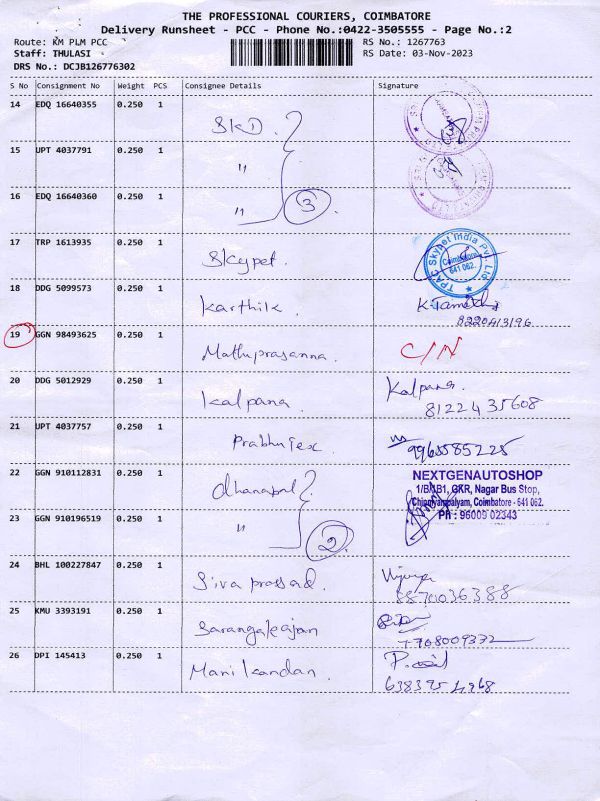 THE PROFESSIONAL COURIERS, COIMBATORE
Delivery Runsheet - PCC - Phone No.:0422-3505555 - Page No.:2
Route: KM PLM PCC RS No.: 1267763
Staff: THULASI RS Date: 03-Nov-2023
DRS No.: DCJB126776302
S No Consignment No Weight PCS Consignee Details Signature
14 EDQ 16640355 0.250 1 SKD
15 UPT 4037791 0.250 1 "
16 EDQ 16640360 0.250 1 " 3
17 TRP 1613935 0.250 1 Skypet. TPAC Skypet India Pvt. Ltd Coimbatore 641 062.
18 DDG 5099573 0.250 1 Karthik.
8220413196
19 GGN 98493625 0.250 1 Mathuprasanna. C/N
20 DDG 5012929 0.250 1 Kalpana. Kalpana.
8122435608
21 UPT 4037757 0.250 1 Prabhu Tex. 9965585225
22 GGN 910112831 0.250 1 dhanapal NEXTGENAUTOSHOP
Nagar Bus Stop,
Coimbatore - 641 062.
23 GGN 910196519 0.250 1 " 2 PH : 96009 02343
24 BHL 100227847 0.250 1 Siva prasad.
8870036388
25 KMU 3393191 0.250 1 Sarangarajan
7708009332
26 DPI 145413 0.250 1 Manikandan.